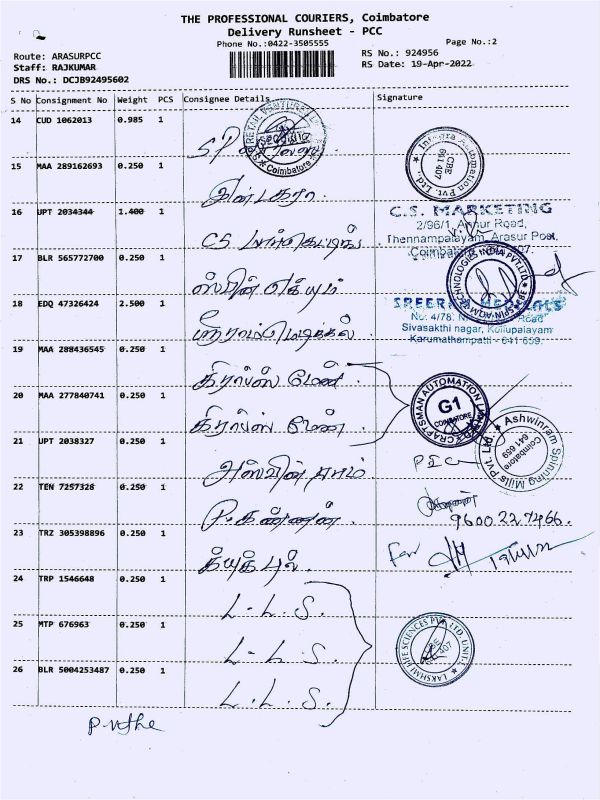 THE PROFESSIONAL COURIERS, Coimbatore
Delivery Runsheet - PCC
Phone No.:0422-3505555
Page No.:2
Route: ARASURPCC
Staff: RAJKUMAR
DRS No.: DCJB92495602
RS No.: 924956
RS Date: 19-Apr-2022
S No Consignment No Weight PCS Consignee Details Signature
14 CUD 1062013 0.985 1
S.P
Coimbatore
15 MAA 289162693 0.250 1
Integra Automation Pvt. Ltd., CBE 641 407
16 UPT 2034344 1.400 1
CS மார்க்கெட்டிங்
C.S. MARKETING
2/96/1, Annur Road,
Thennampalayam, Arasur Post,
17 BLR 565772700 0.250 1
TECHNOLOGIES INDIA PVT.LTD
18 EDQ 47326424 2.500 1
SREERAM MEDICALS
No: 4/78. Road
Sivasakthi nagar, Kollupalayam
Karumathampatti - 641 659.
19 MAA 288436545 0.250 1
கிராப்ஸ் மேன்
20 MAA 277840741 0.250 1
கிராப்ஸ் மேன்
CRAFTSMAN AUTOMATION LIMITED G1 COIMBATORE
21 UPT 2038327 0.250 1
அஸ்வின் ராம்
Ashwinram Spinning Mills Pvt. Ltd. Coimbatore 641 659
22 TEN 7257326 0.250 1
P. கண்ணன்
9600227466.
23 TRZ 305398896 0.250 1
For
24 TRP 1546648 0.250 1
L. L. S.
25 MTP 676963 0.250 1
L. L. S.
LAKSHMI LIFE SCIENCES PVT. LTD. UNIT-I
26 BLR 5004253487 0.250 1
L. L. S.